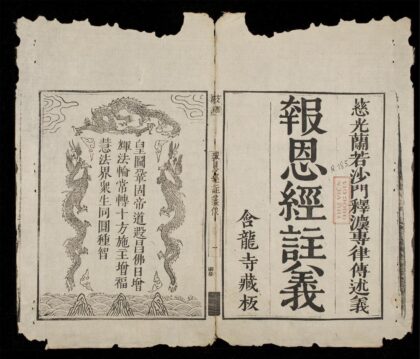 慈光蘭若沙門釋濂專律傳述義
報恩經註義
含龍寺藏板
皇圖鞏固帝道遐昌佛日增
輝法輪常轉十方施主增福
慧法界衆生同圓種智